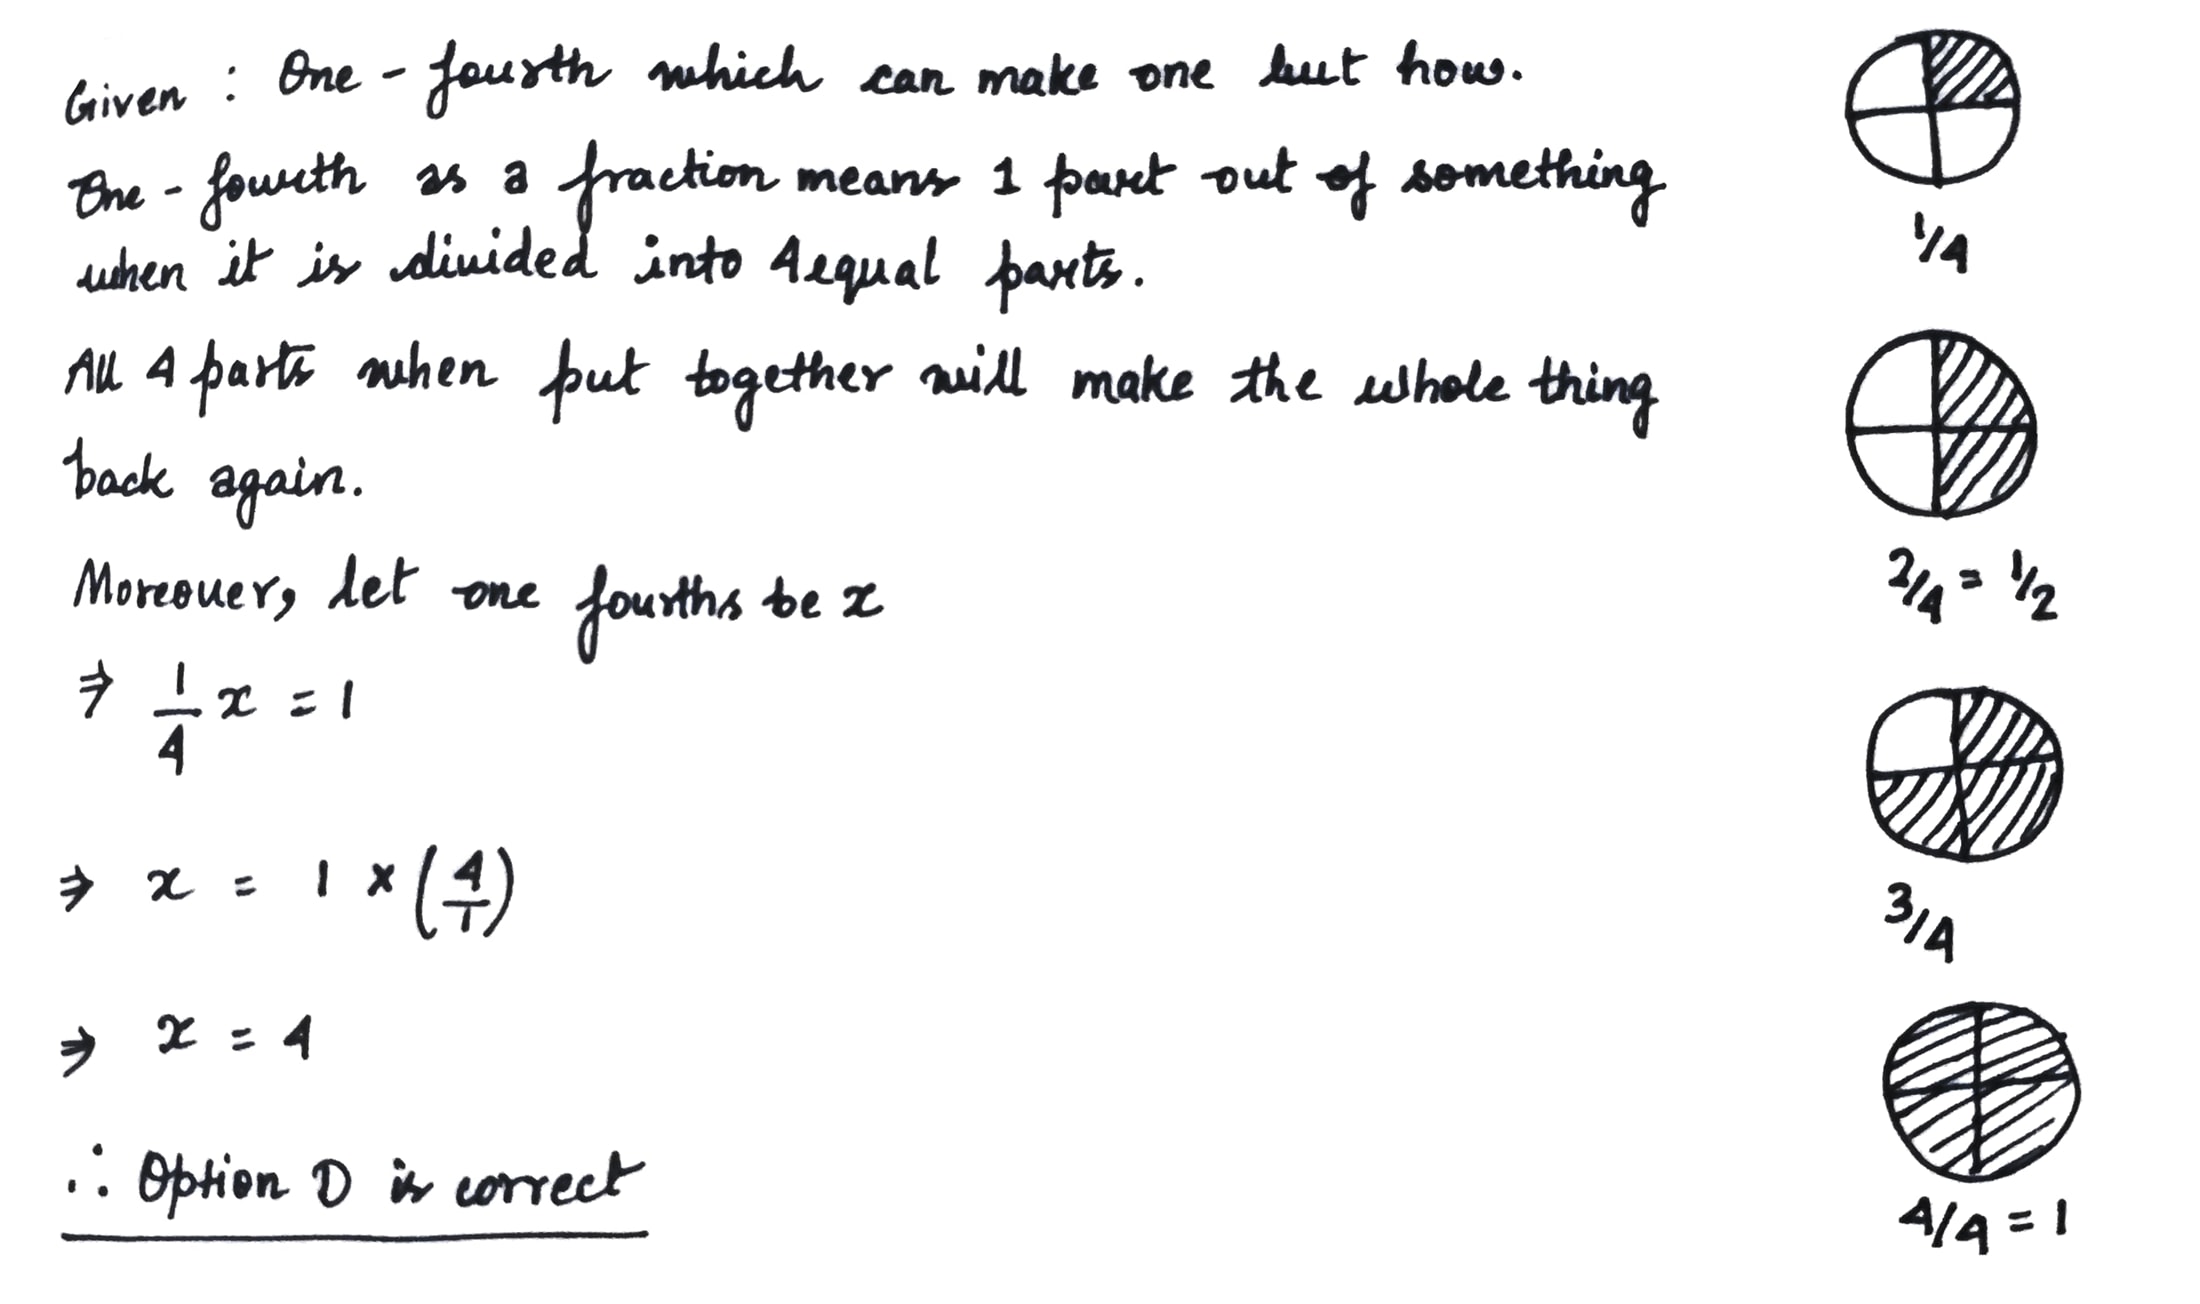 Given : One - fourth which can make one but how.
One - fourth as a fraction means 1 part out of something
when it is divided into 4 equal parts.
All 4 parts when put together will make the whole thing
back again.
Moreover, let one fourths be x
⇒ 1/4 x = 1
⇒ x = 1 × (4/1)
⇒ x = 4
∴ Option D is correct
1/4
2/4 = 1/2
3/4
4/4 = 1